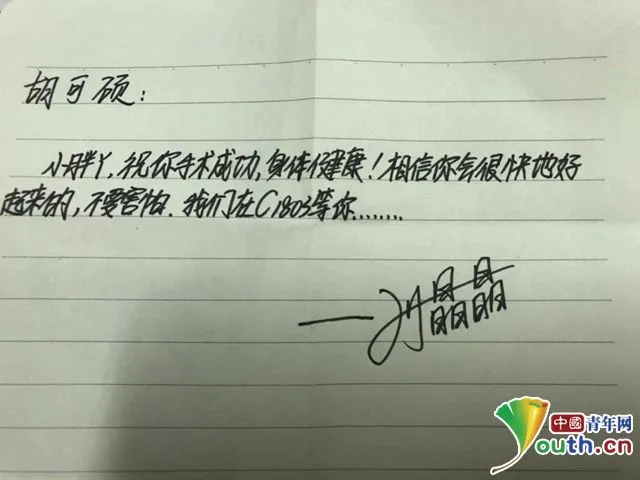 胡可硕：
小胖丫，祝你手术成功，身体健康！相信你会很快地好
起来的，不要害怕．我们在C1803等你……
——刘晶晶
中國青年网
Youth.cn